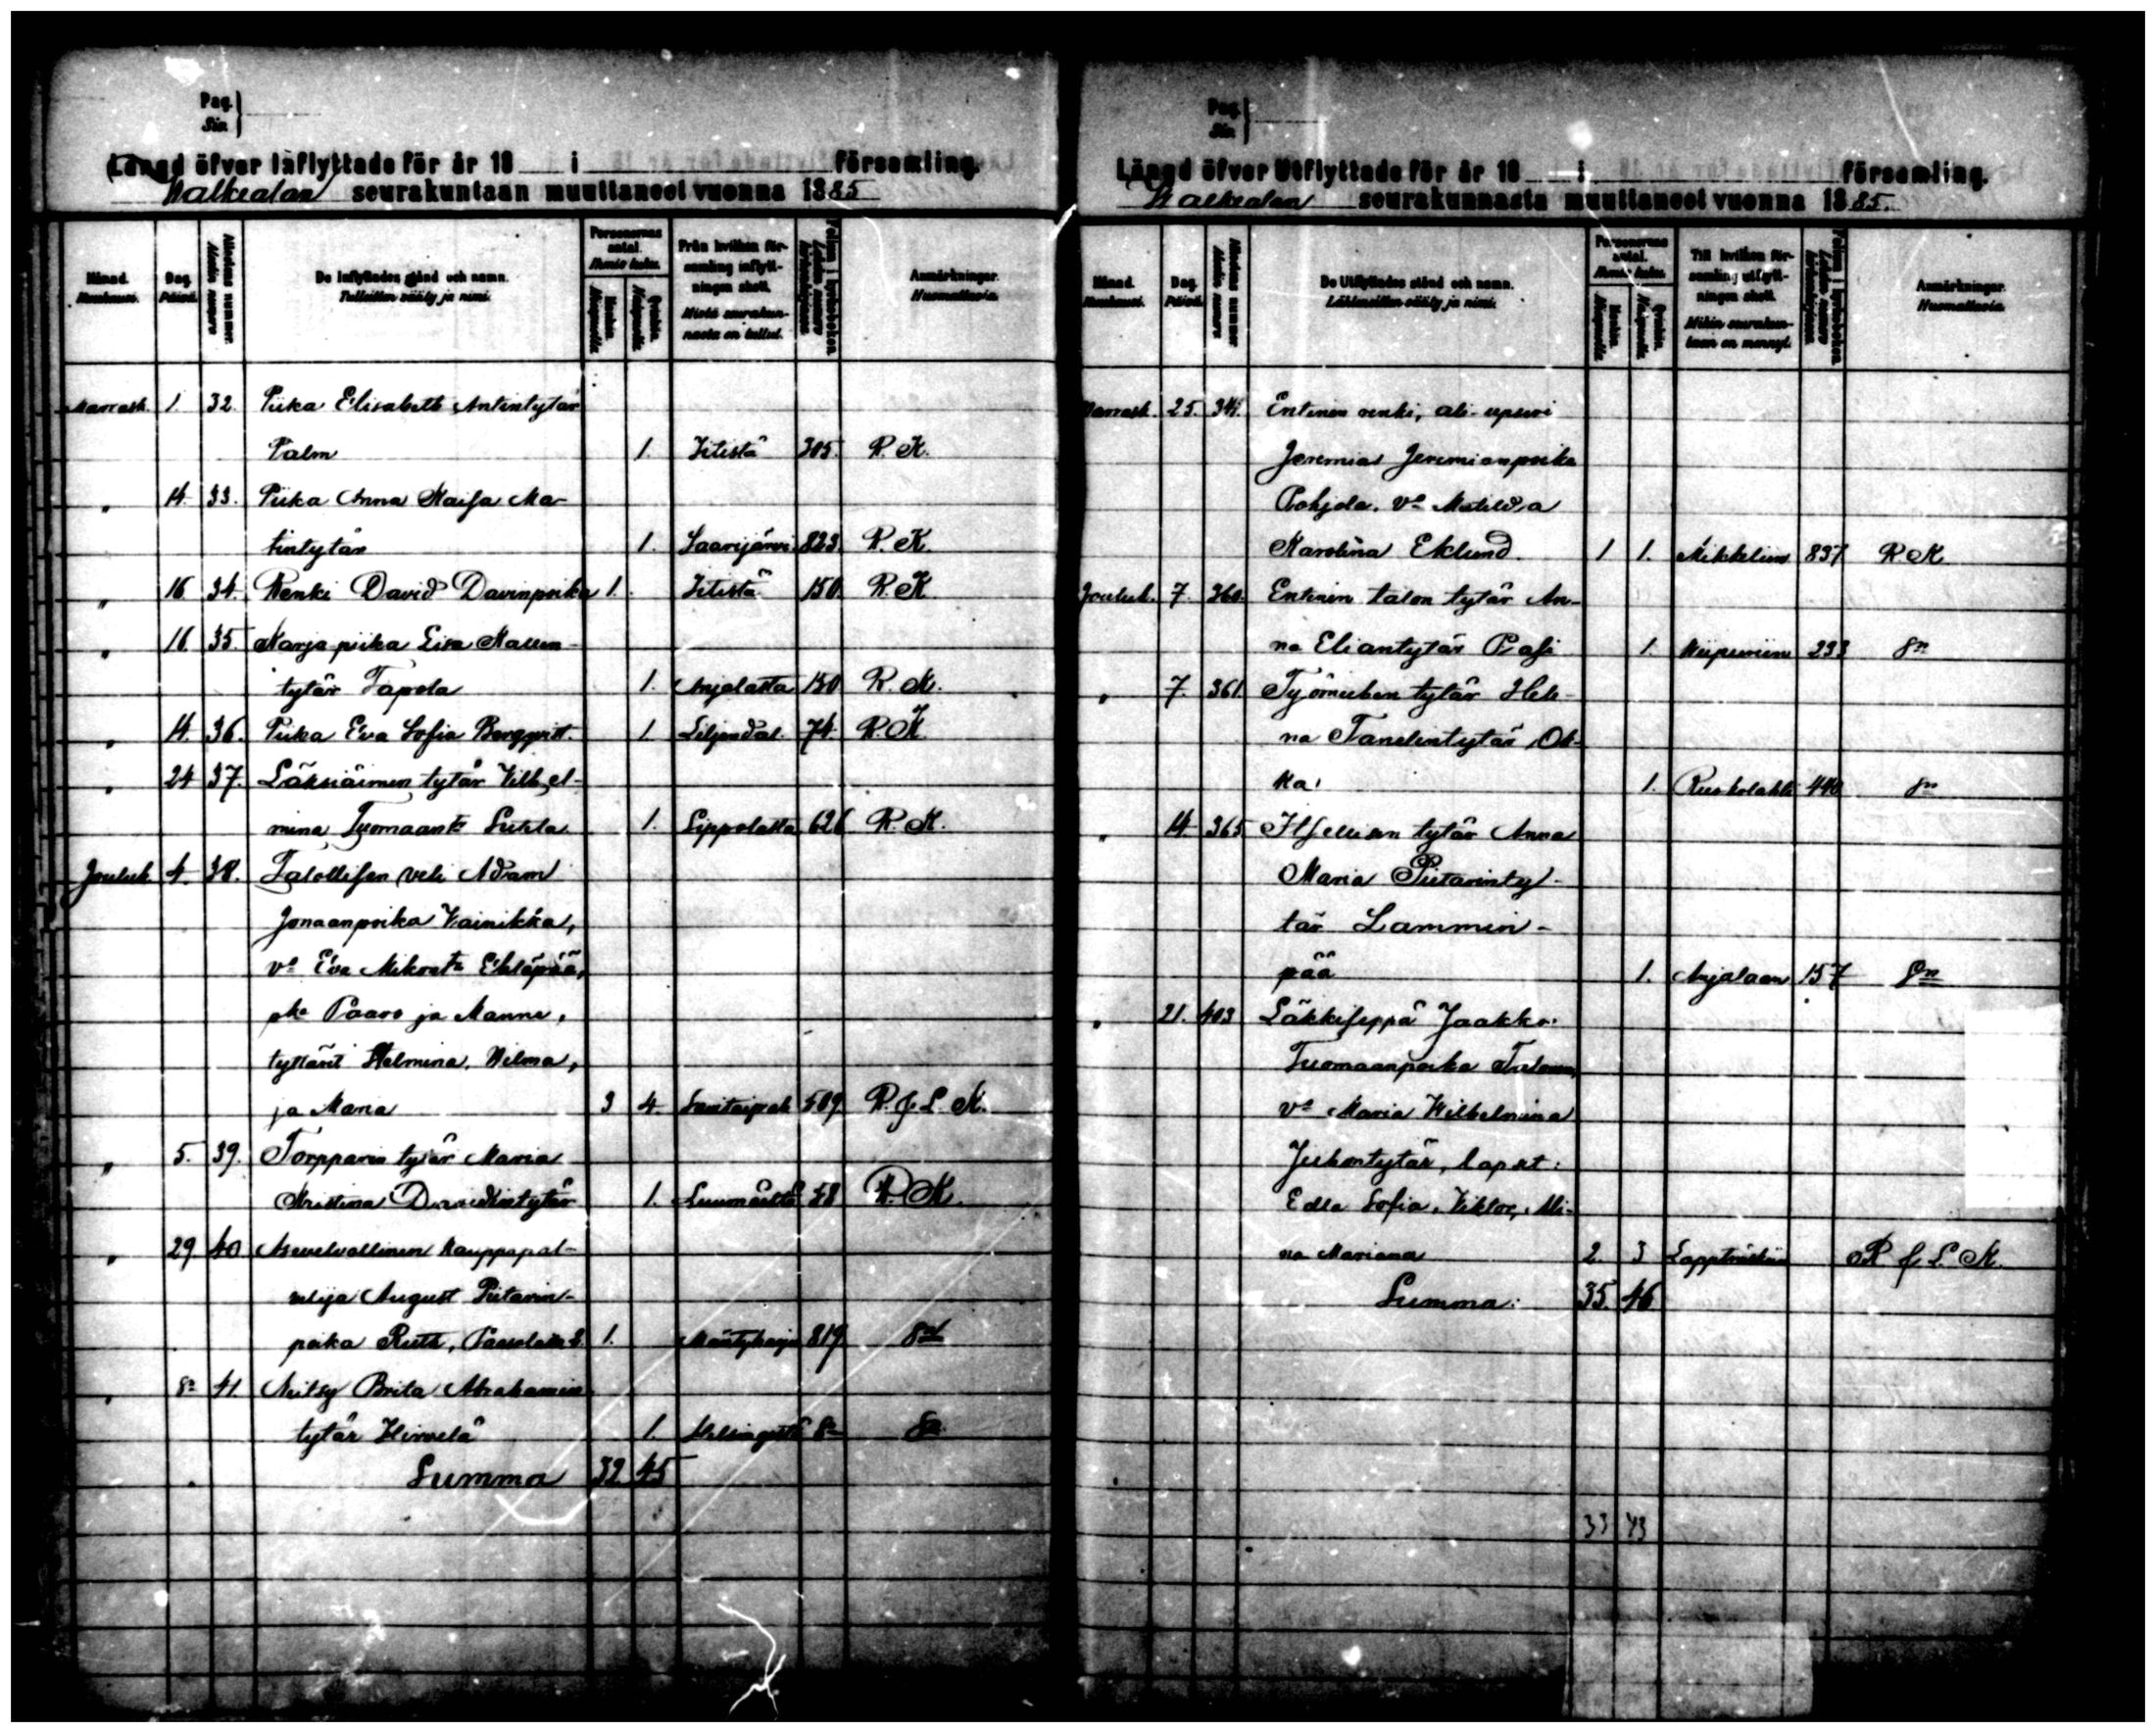 Pag.
Siv.
Längd öfver Inflyttade för år 18 i församling.
Walkealan seurakuntaan muuttaneet vuonna 1885
Månad. Kuukausi.
Dag. Päivä.
Attestens nummer.
De Inflyttades stånd och namn.
Tulleitten sääty ja nimi.
Personernas antal.
Mankön. Miespuolia
Qvinkön. Naispuolia
Från hvilken församling inflyttningen skett.
Mistä seurakunnasta on tullut.
Folium i kyrkoboken.
Anmärkningar.
Muistutuksia.
Marrask. 1. 32. Piika Elisabeth Antintytär
Palm 1. Iitistä 305. R. K.
" 14. 33. Piika Anna Kaisa Ma-
tintytär 1. Saarijärvi 823 R. K.
" 16. 34. Renki David Davinpoika 1. Iitistä 150 R. K.
" 16. 35. Karja piika Lisa Kallen-
tytär Tapola 1. Anjalasta 150 R. K.
" 14. 36. Piika Eva Sofia Bergqvist 1. Liljendal 74 R. K.
" 24 37. tytär Vilhel-
mina Tuomaant. 1. Sippolasta 626 R. K.
Jouluk. 4. 38. Talollisen veli Adam
Jonaanpoika Vainikka,
va Eva Mikont.
pka Paavo ja Manne,
tyttäret Helmina, Wilma,
ja Maria 3 4. Savitaipal 509 R. J. L. K.
" 5. 39. Torpparin tytär Maria
Kristina Davidintytär 1. Luumäeltä 58 R. K.
" 29 40 Asevelvollinen kauppapal-
velija August Pietarin-
poika 1. Mäntyharju 819
" 41 Neitsy Brita Abrahamin
tytär Hirvelä 1. Helsingistä
Summa 32. 45
Pag.
Siv.
Längd öfver Utflyttade för år 18 i församling.
Walkealan seurakunnasta muuttaneet vuonna 1885.
Månad. Kuukausi.
Dag. Päivä.
Attestens nummer.
De Utflyttades stånd och namn.
Lähteneitten sääty ja nimi.
Personernas antal.
Mankön. Miespuolia
Qvinkön. Naispuolia
Till hvilken församling utflyttningen skett.
Mihin seurakuntaan on mennyt.
Folium i kyrkoboken.
Anmärkningar.
Muistutuksia.
Marrask. 25. Entinen renki, ali-upseri
Jeremias Jeremianpoika
Pohjola, va Matilda
Karolina Eklund 1 1. Mikkeliin 837 R. K.
Jouluk. 7. 360. Entinen talon tytär An-
na Eliantytär 1. Wiipuriin 233
" 7. 361. Työmiehen tytär Hele-
na Tanelintytär Ok-
ka 1. Ruokolahti 440
" 14 365 Itsellisen tytär Anna
Maria Pietarinty-
tär Lammin-
pää 1. Anjalaan 157
" 21. 403 Läkkiseppä Jaakko
Tuomaanpoika
va Maria Wilhelmina
Juhontytär, lapset:
Edla Sofia, Viktor, Mi-
na Mariana 2. 3 R. J. L. K.
Summa: 35. 46
33 43